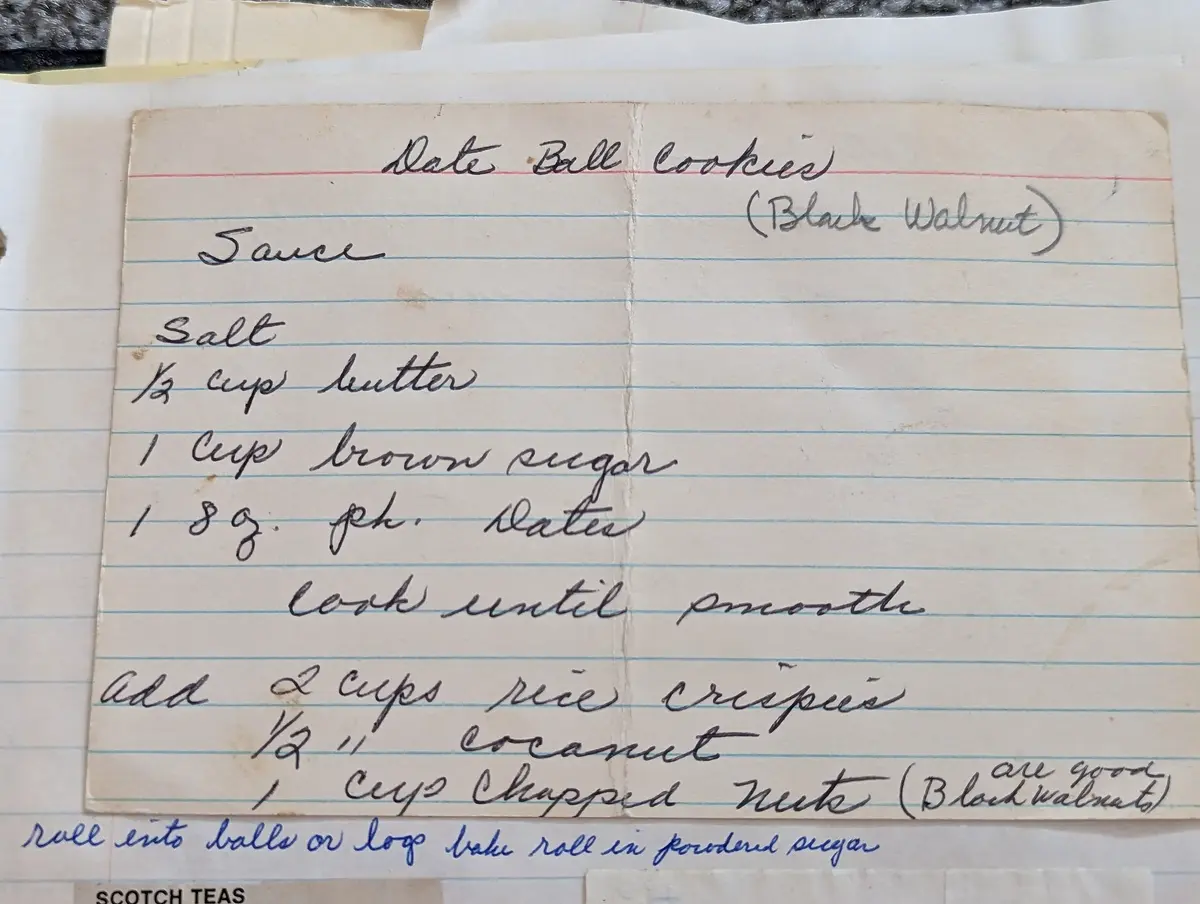 Date Ball Cookies
(Black Walnut)
Sauce
Salt
1/2 cup butter
1 cup brown sugar
1 8 oz. pk. Dates
Cook until smooth
add 2 cups rice crispies
1/2 " cocanut
1 cup chopped nuts (Black Walnuts) are good
roll into balls or logs bake roll in powdered sugar
SCOTCH TEAS